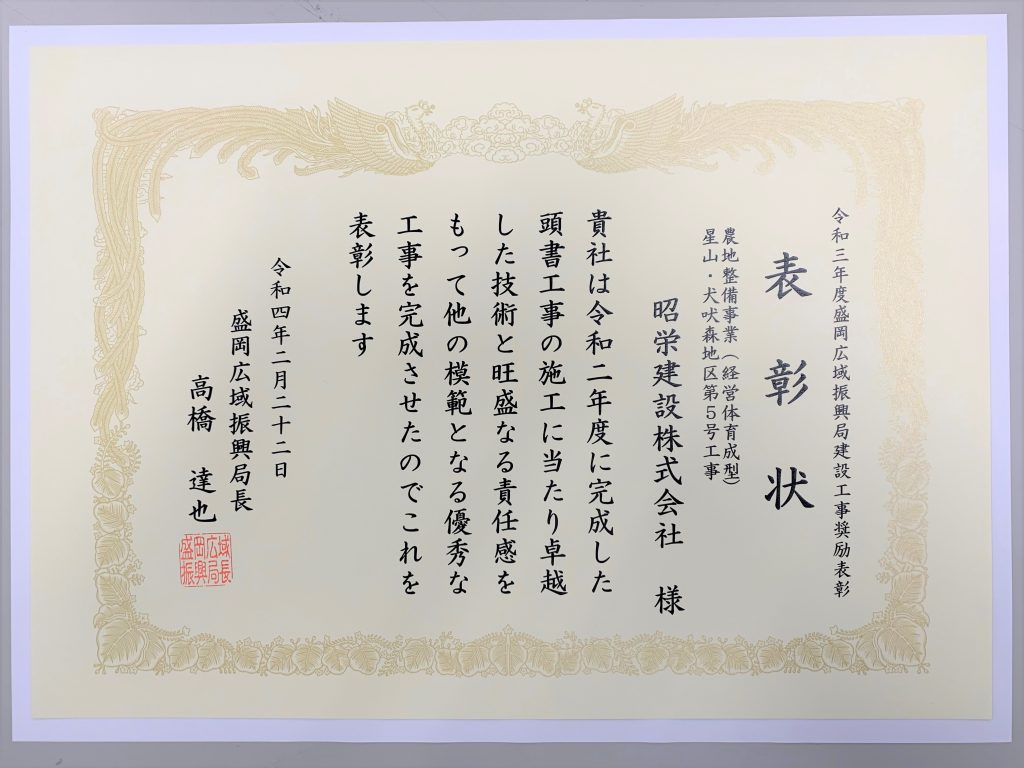 令和三年度盛岡広域振興局建設工事奨励表彰
表彰状
農地整備事業（経営体育成型）
星山・犬吠森地区第５号工事
昭栄建設株式会社　様
貴社は令和二年度に完成した
頭書工事の施工に当たり卓越
した技術と旺盛なる責任感を
もって他の模範となる優秀な
工事を完成させたのでこれを
表彰します
令和四年二月二十二日
盛岡広域振興局長
高橋　達也
盛岡広域振興局長